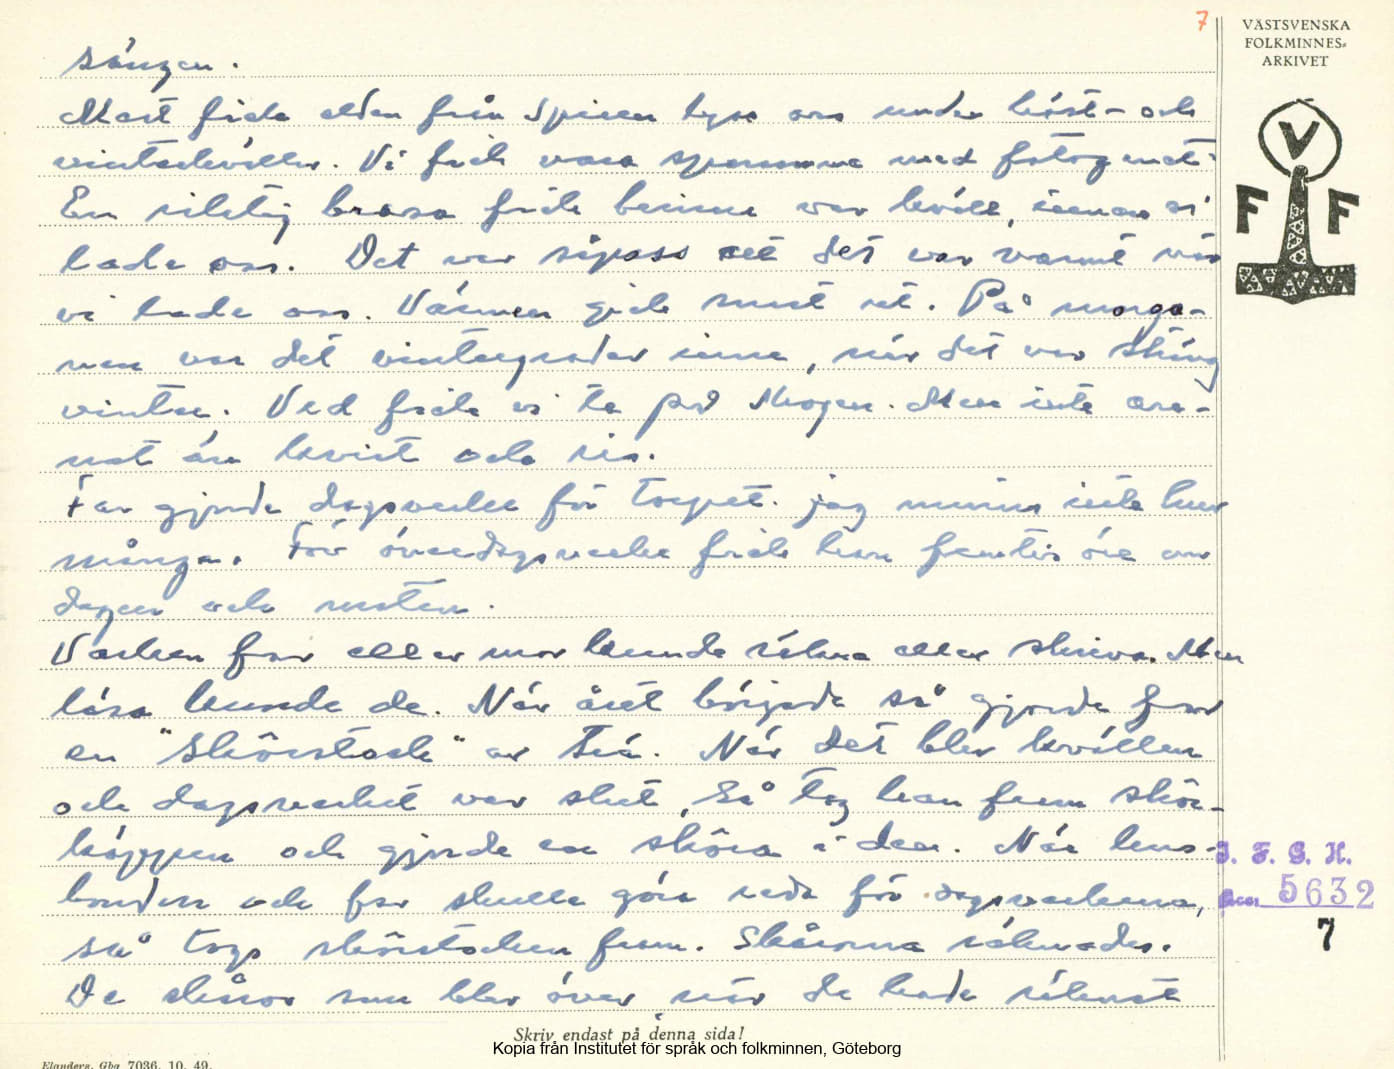 7
VÄSTSVENSKA
FOLKMINNES-
ARKIVET
V
F F
sängen.
Mest fick elden från spisen lysa oss under höst- och
vinterkvällar. Vi fick vara sparsamma med fotogenet.
En riktig brasa fick brinna var kväll, innan vi
lade oss. Det var såpass att det var varmt när
vi lade oss. Värmen gick snart ut. På morgo-
nen var det vintergrader inne, när det var sträng
vinter. Ved fick vi ta på skogen. Men inte an-
nat än kvist och ris.
Far gjorde dagsverke för torpet. jag minns inte hur
många. För överdagsverke fick han femtio öre om
dagen och maten.
Varken far eller mor kunde räkna eller skriva. Men
läsa kunde de. När året började så gjorde far
en "skörstock" av trä. När det blev kvällen
och dagsverket var slut, så tog han fram skör-
käppen och gjorde en skåra i den. När hus-
bonden och far skulle göra reda för dagsverkena,
så togs skörstocken fram. Skårorna räknades.
De skåror som blev över när de hade räknat
I. F. G. H.
Acc. 5632
7
Skriv endast på denna sida!
Kopia från Institutet för språk och folkminnen, Göteborg
Elanders, Gbg 7036. 10. 49.